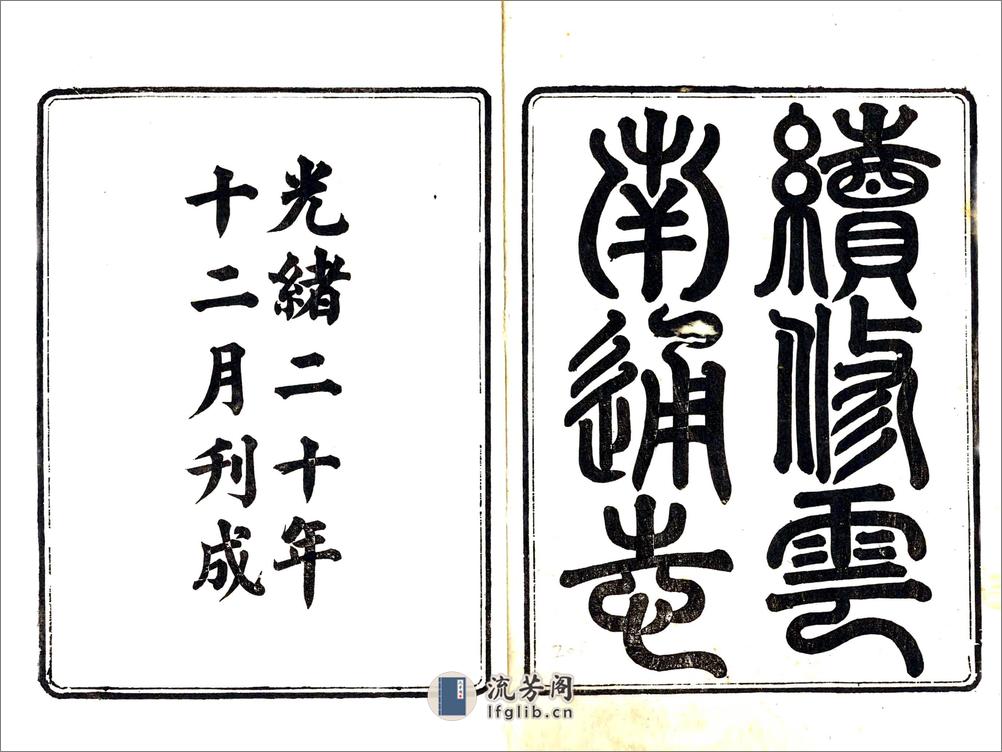 續修雲
南通志
光緒二十年
十二月刊成
流芳阁
lfglib.cn